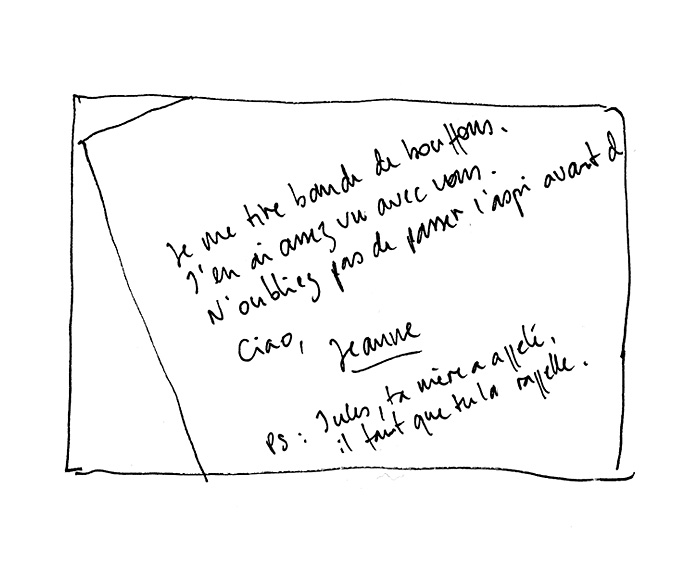 Je me tire bande de bouffons.
J'en ai assez vu avec vous.
N'oubliez pas de passer l'aspi avant d
Ciao, Jeanne
PS : Jules, ta mère a appelé,
il faut que tu la rappelle.